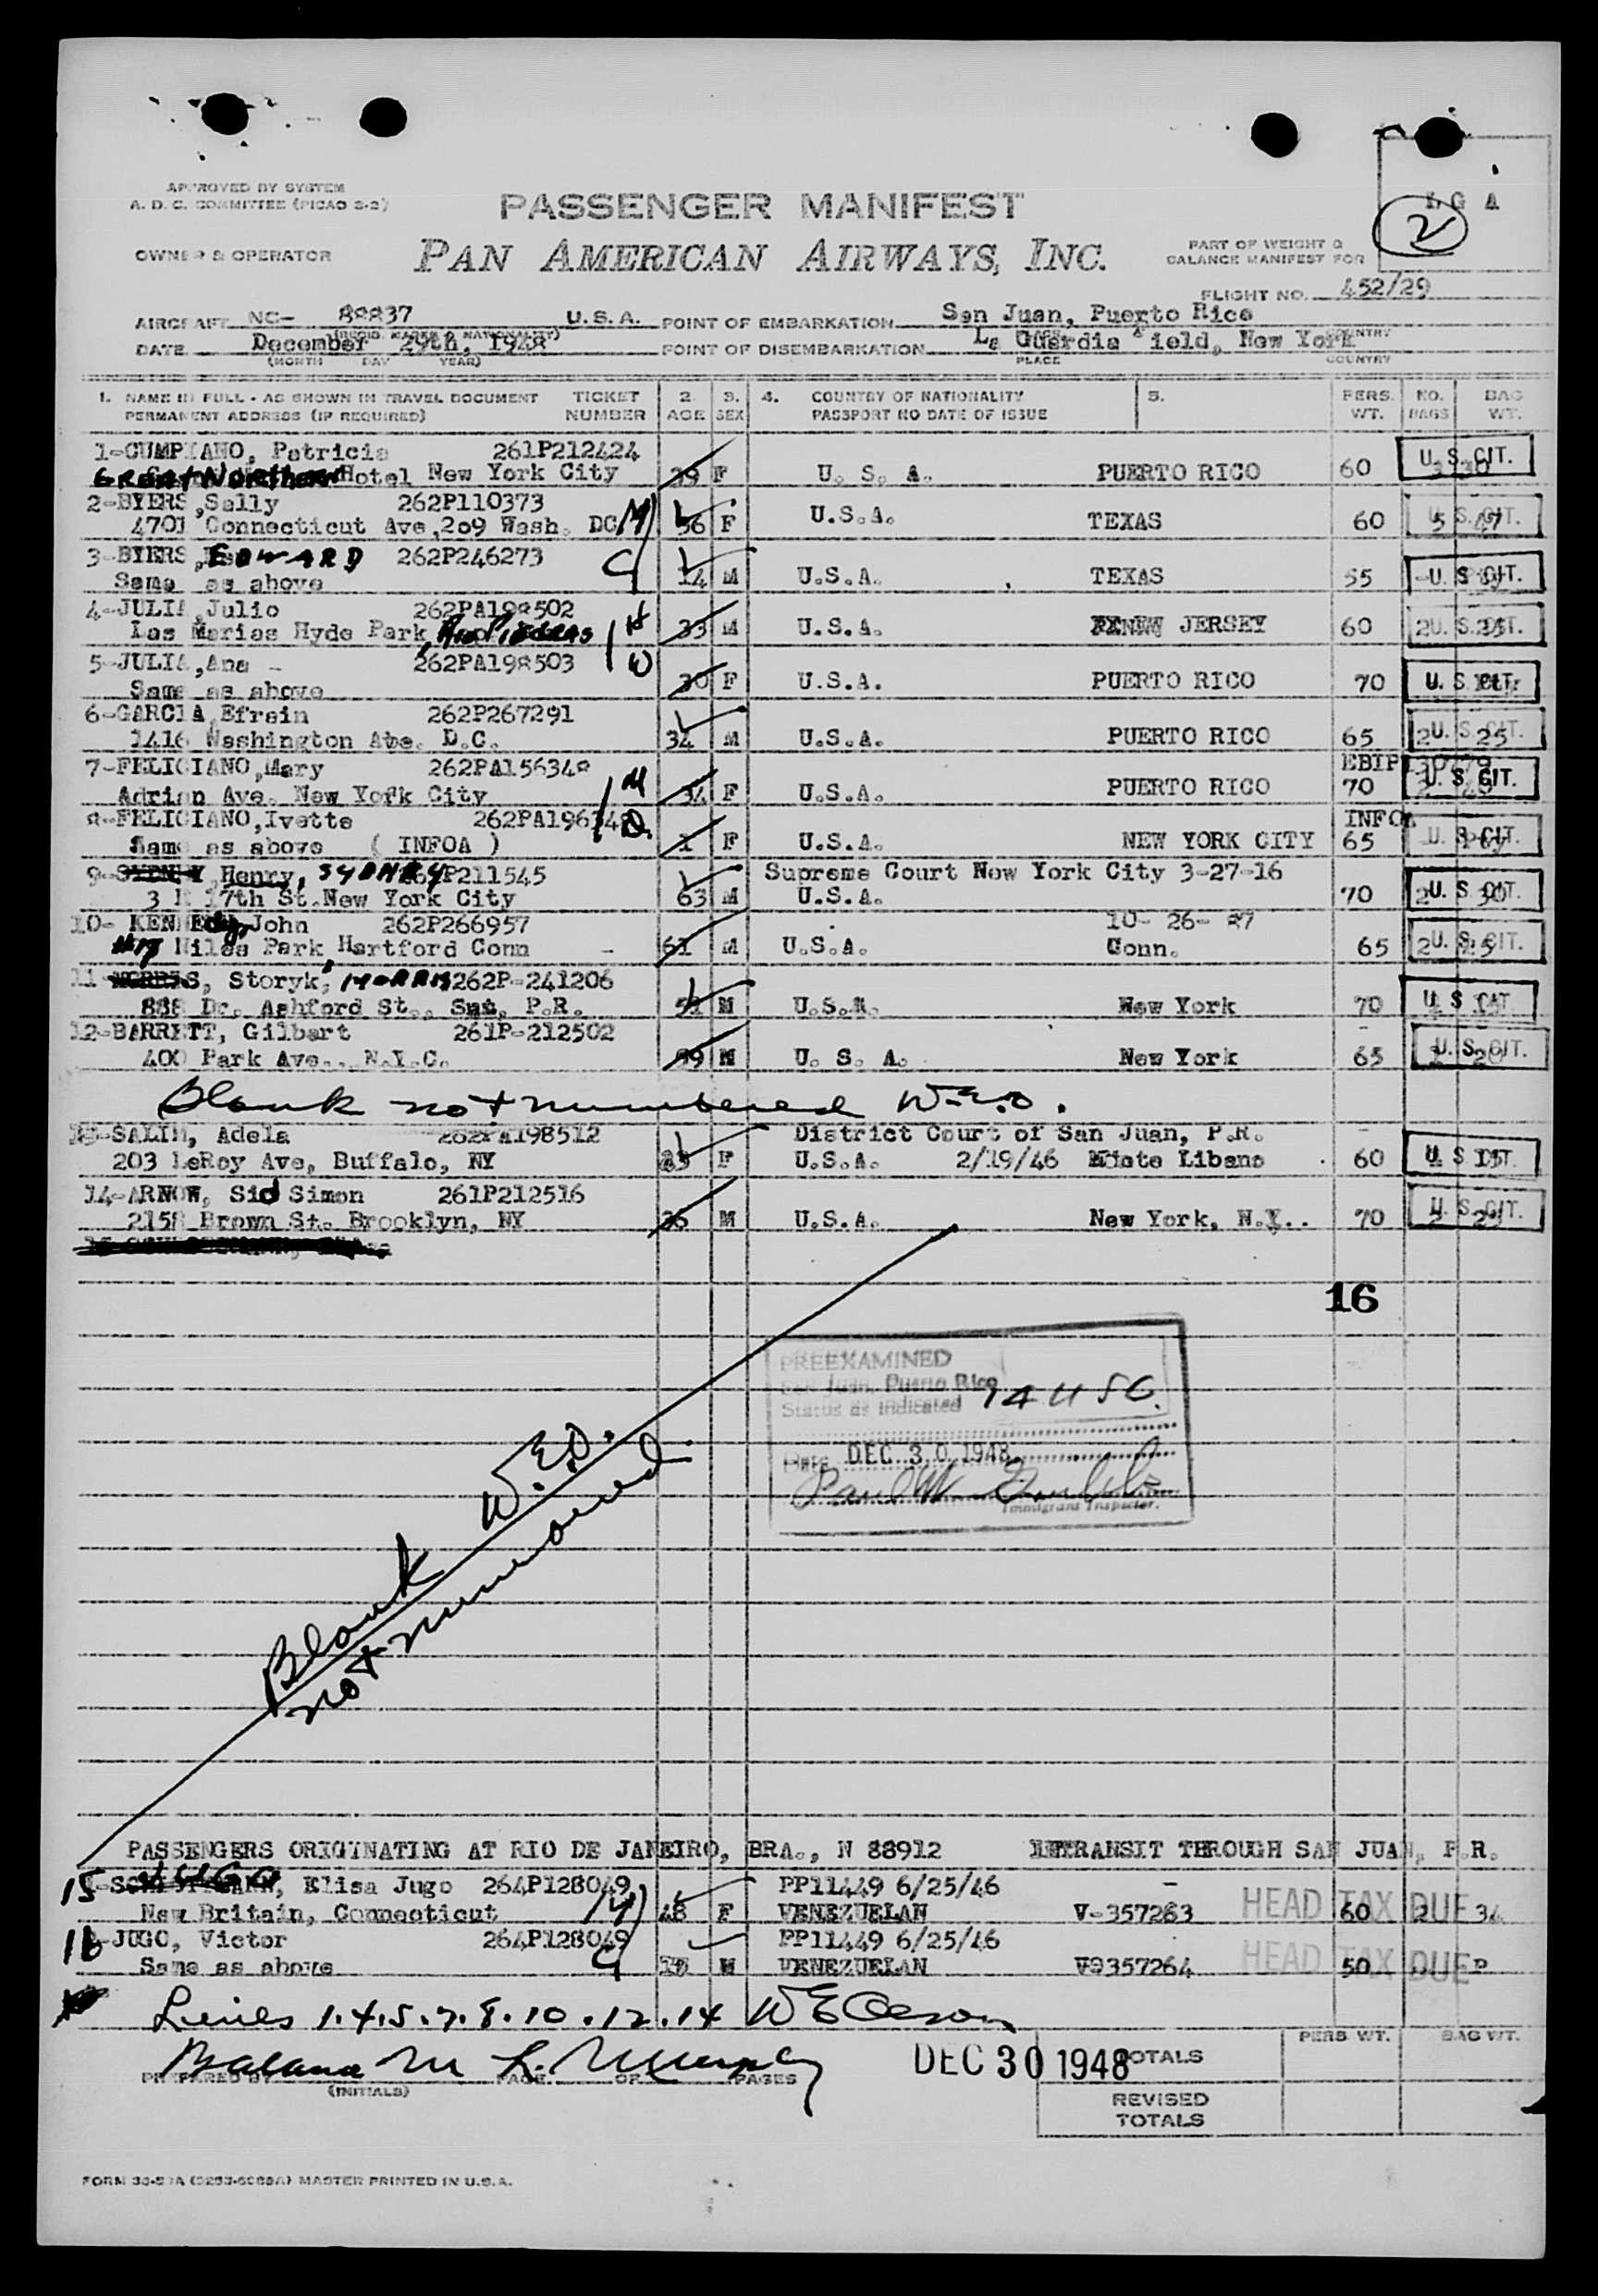 APPROVED BY SYSTEM
A. D. C. COMMITTEE (PICAO 2-2)
OWNER & OPERATOR
PASSENGER MANIFEST
PAN AMERICAN AIRWAYS, INC.
L G A
2
PART OF WEIGHT &
BALANCE MANIFEST FOR
FLIGHT NO. 452/29
AIRCRAFT NC- 88837 U.S.A. POINT OF EMBARKATION San Juan, Puerto Rico
DATE December 29th, 1948 POINT OF DISEMBARKATION La Guardia Field, New York
(MONTH DAY YEAR) PLACE COUNTRY
1. NAME IN FULL - AS SHOWN IN TRAVEL DOCUMENT TICKET 2. 3. 4. COUNTRY OF NATIONALITY 5. PERS. NO. BAG
PERMANENT ADDRESS (IF REQUIRED) NUMBER AGE SEX PASSPORT NO DATE OF ISSUE WT. BAGS WT.
1-GUMPIANO, Patricia 261P212424
Great Northern Hotel New York City 39 F U. S. A. PUERTO RICO 60 U. S. CIT.
2-BYERS,Sally 262P110373
4701 Connecticut Ave,209 Wash. DC M 56 F U.S.A. TEXAS 60 5 47 U. S. CIT.
3-BYERS, EDWARD 262P246273
Same as above C 14 M U.S.A. TEXAS 55 U. S. CIT.
4-JULIA,Julio 262PA198502
Las Marias Hyde Park, Rio Piedras H 33 M U.S.A. NEW JERSEY 60 2 U. S. CIT.
5-JULIA,Ana - 262PA198503
Same as above W 30 F U.S.A. PUERTO RICO 70 U. S. CIT.
6-GARCIA,Efrain 262P267291
1416 Washington Ave. D.C. 34 M U.S.A. PUERTO RICO 65 2 25 U. S. CIT.
7-FELICIANO,Mary 262PA156348
Adrian Ave. New York City M 34 F U.S.A. PUERTO RICO 70 U. S. CIT.
8-FELICIANO,Ivette
Same as above ( INFOA ) D. 1 F U.S.A. NEW YORK CITY 65 U. S. CIT.
INFOA
9- Henry, SYDNEY P211545 Supreme Court New York City 3-27-16
17th St.New York City 63 M U.S.A. 70 2 30 U. S. CIT.
10- KENNEDY,John 262P266957 10- 26- 87
#17 Niles Park, Hartford Conn - 61 M U.S.A. Conn. 65 2 U. S. CIT.
11- MORRIS, Storyk, MORRIS 262P-241206
888 Dr. Ashford St., Snt, P.R. M U.S.A. New York 70 U. S. CIT.
12-BARRETT, Gilbert 261P-212502
400 Park Ave., N.Y.C. M U. S. A. New York 65 U. S. CIT.
Blank not numbered W.E.O.
13-SALIM, Adela 262PA198512 District Court of San Juan, P.R.
203 LeRoy Ave, Buffalo, NY F U.S.A. 2/19/46 Monte Libano 60 U. S. CIT.
14-ARNOW, Sid Simon 261P212516
2158 Brown St. Brooklyn, NY M U.S.A. New York, N.Y.. 70 U. S. CIT.
16
PREEXAMINED
San Juan, Puerto Rico
Status as indicated 14 USC.
Date DEC 30 1948
Immigrant Inspector.
Blank W.E.O.
not numbered
PASSENGERS ORIGINATING AT RIO DE JANEIRO, BRA., N 88912 INTRANSIT THROUGH SAN JUAN, P.R.
15 JUGO, Elisa Jugo 264P128049 PP11449 6/25/46 -
New Britain, Connecticut M 48 F VENEZUELAN V-357263 HEAD TAX DUE 60 2 34
16 -JUGO, Victor 264P128049 PP11449 6/25/46
Same as above C M VENEZUELAN V-357264 HEAD TAX DUE 50 P
Lines 1.4.5.7.8.10.12.14 W E Oleson
Balance M L. Murphy DEC 30 1948
PREPARED BY (INITIALS) PAGE OF PAGES
PERS. WT. BAG WT.
TOTALS
REVISED
TOTALS
MASTER PRINTED IN U.S.A.